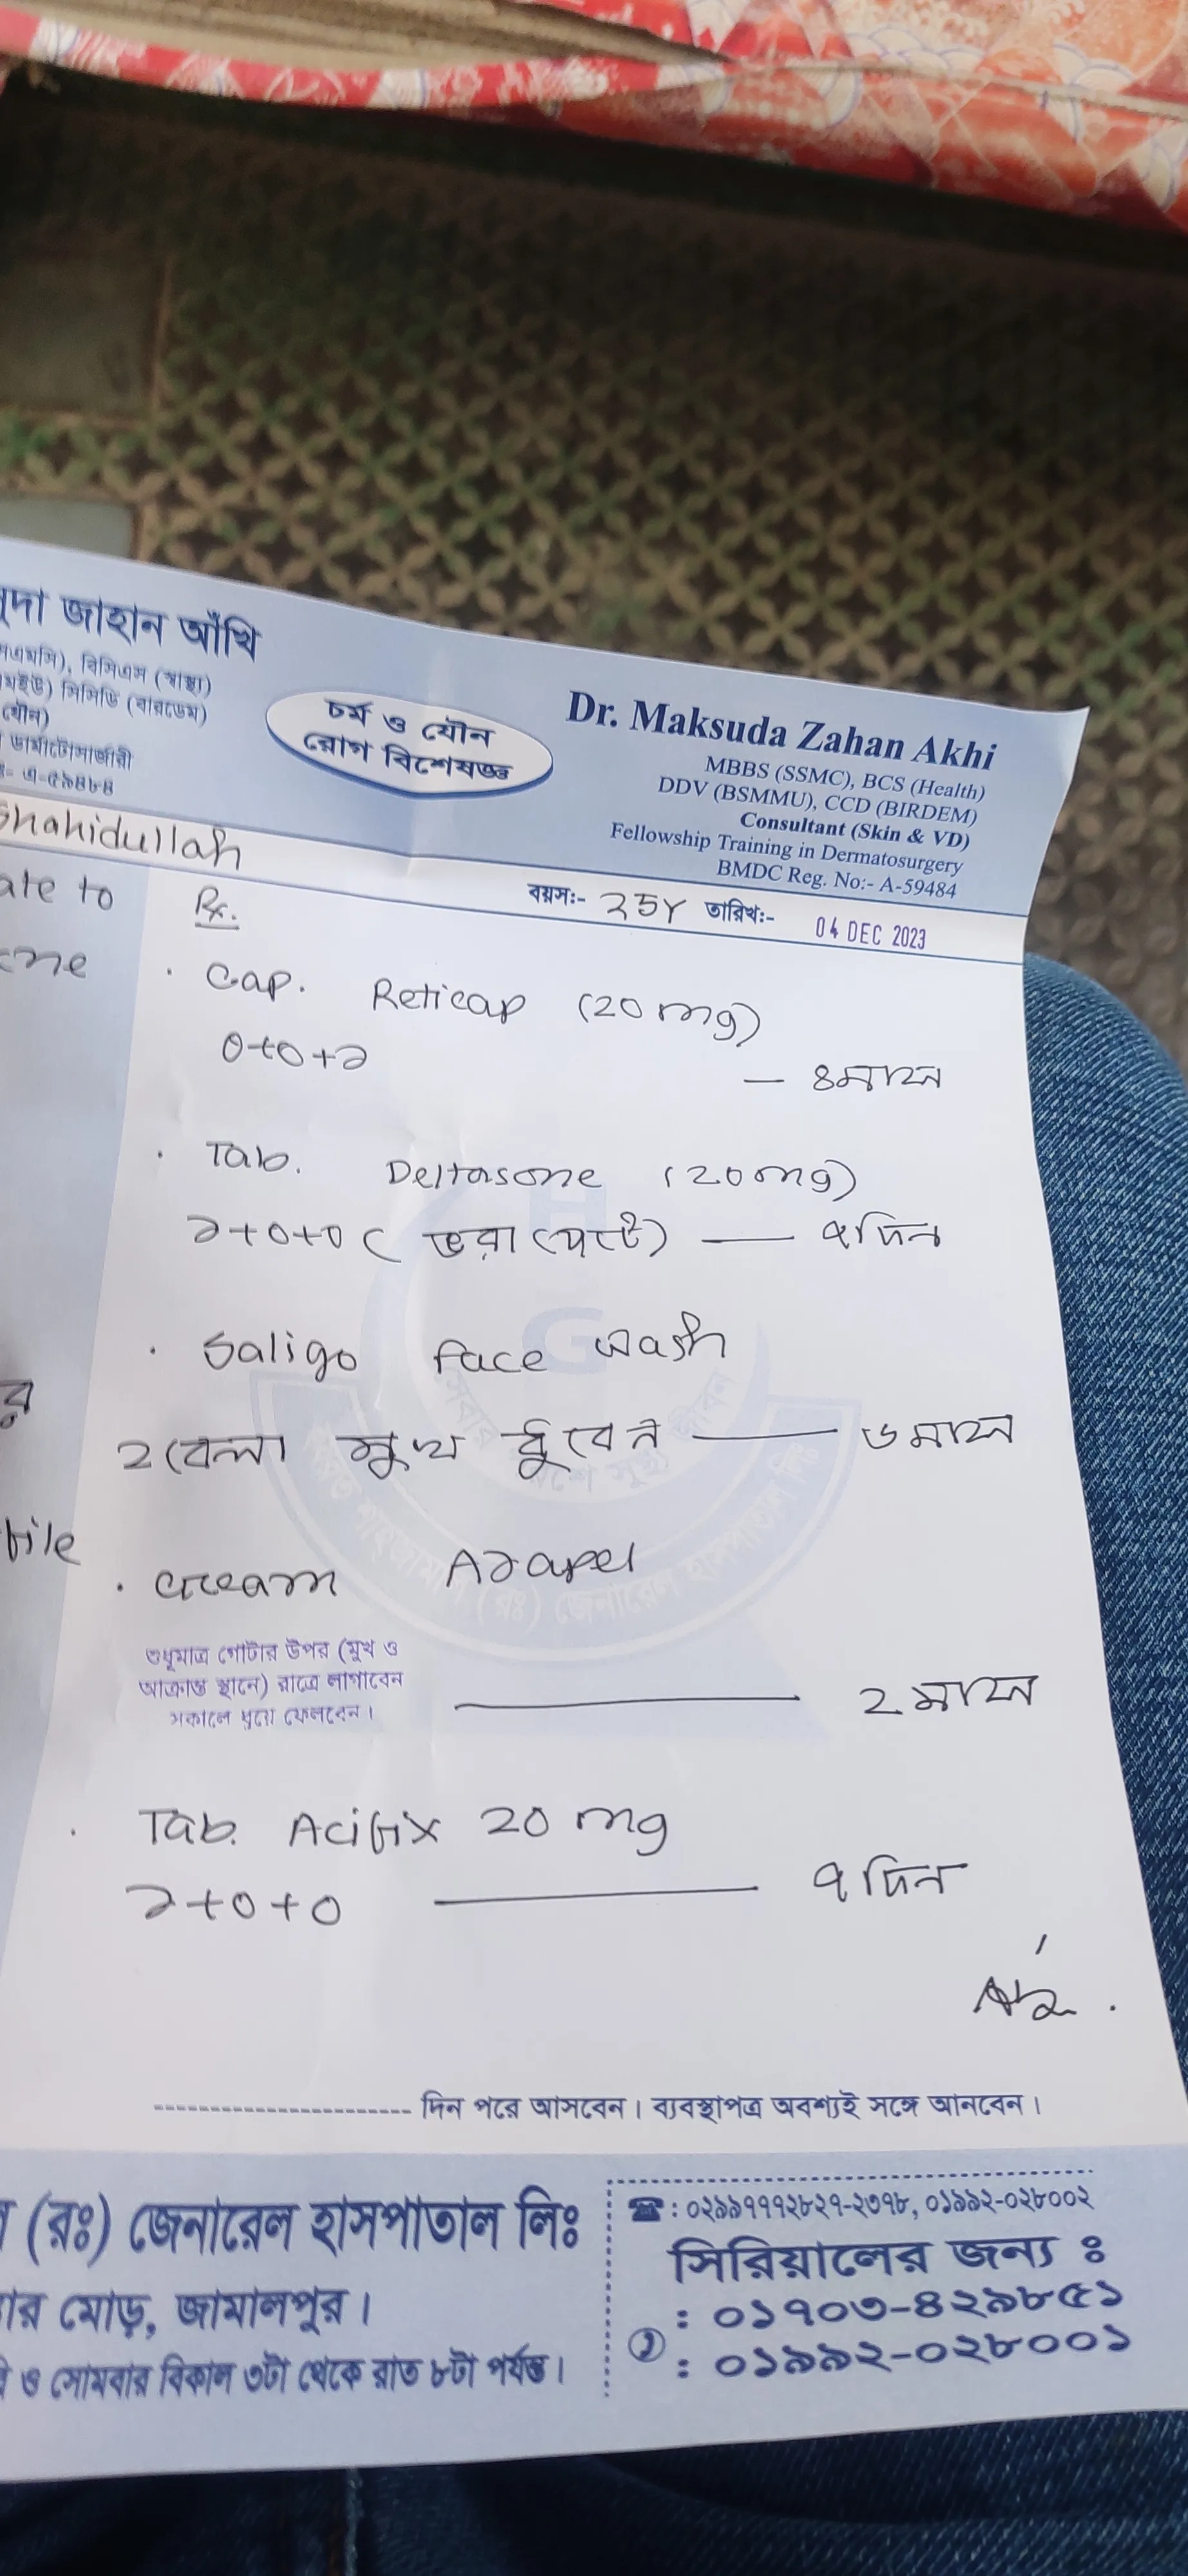 জাহান আঁখি
বিসিএস (স্বাস্থ্য)
সিসিডি (বারডেম)
ডার্মাটোসার্জারী
এ-৫৯৪৮৪
চর্ম ও যৌন
রোগ বিশেষজ্ঞ
Dr. Maksuda Zahan Akhi
MBBS (SSMC), BCS (Health)
DDV (BSMMU), CCD (BIRDEM)
Consultant (Skin & VD)
Fellowship Training in Dermatosurgery
BMDC Reg. No:- A-59484
Shahidullah
বয়স:- 25Y তারিখ:- 04 DEC 2023
ate to
Rx.
cne
. Cap. Reticap (20 mg)
0+0+১
— ৪মাস
. Tab. Deltasone (20mg)
১+0+0 (ভরা পেটে) — ৭দিন
. Saligo face wash
২বেলা মুখ ধুবেন — ৬মাস
র
file
. cream Azapel
শুধুমাত্র গোটার উপর (মুখ ও
আক্রান্ত স্থানে) রাত্রে লাগাবেন
সকালে ধুয়ে ফেলবেন।
— ২মাস
. Tab. Acifix 20 mg
১+0+0 — ৭দিন
দিন পরে আসবেন। ব্যবস্থাপত্র অবশ্যই সঙ্গে আনবেন।
(রঃ) জেনারেল হাসপাতাল লিঃ
মোড়, জামালপুর।
ও সোমবার বিকাল ৩টা থেকে রাত ৮টা পর্যন্ত।
☎: ০২৯৯৭৭৭২৮২৭-২৩৭৮, ০১৯৯২-০২৮০০২
সিরিয়ালের জন্য ঃ
: ০১৭০৩-৪২৯৮৫১
: ০১৯৯২-০২৮০০১